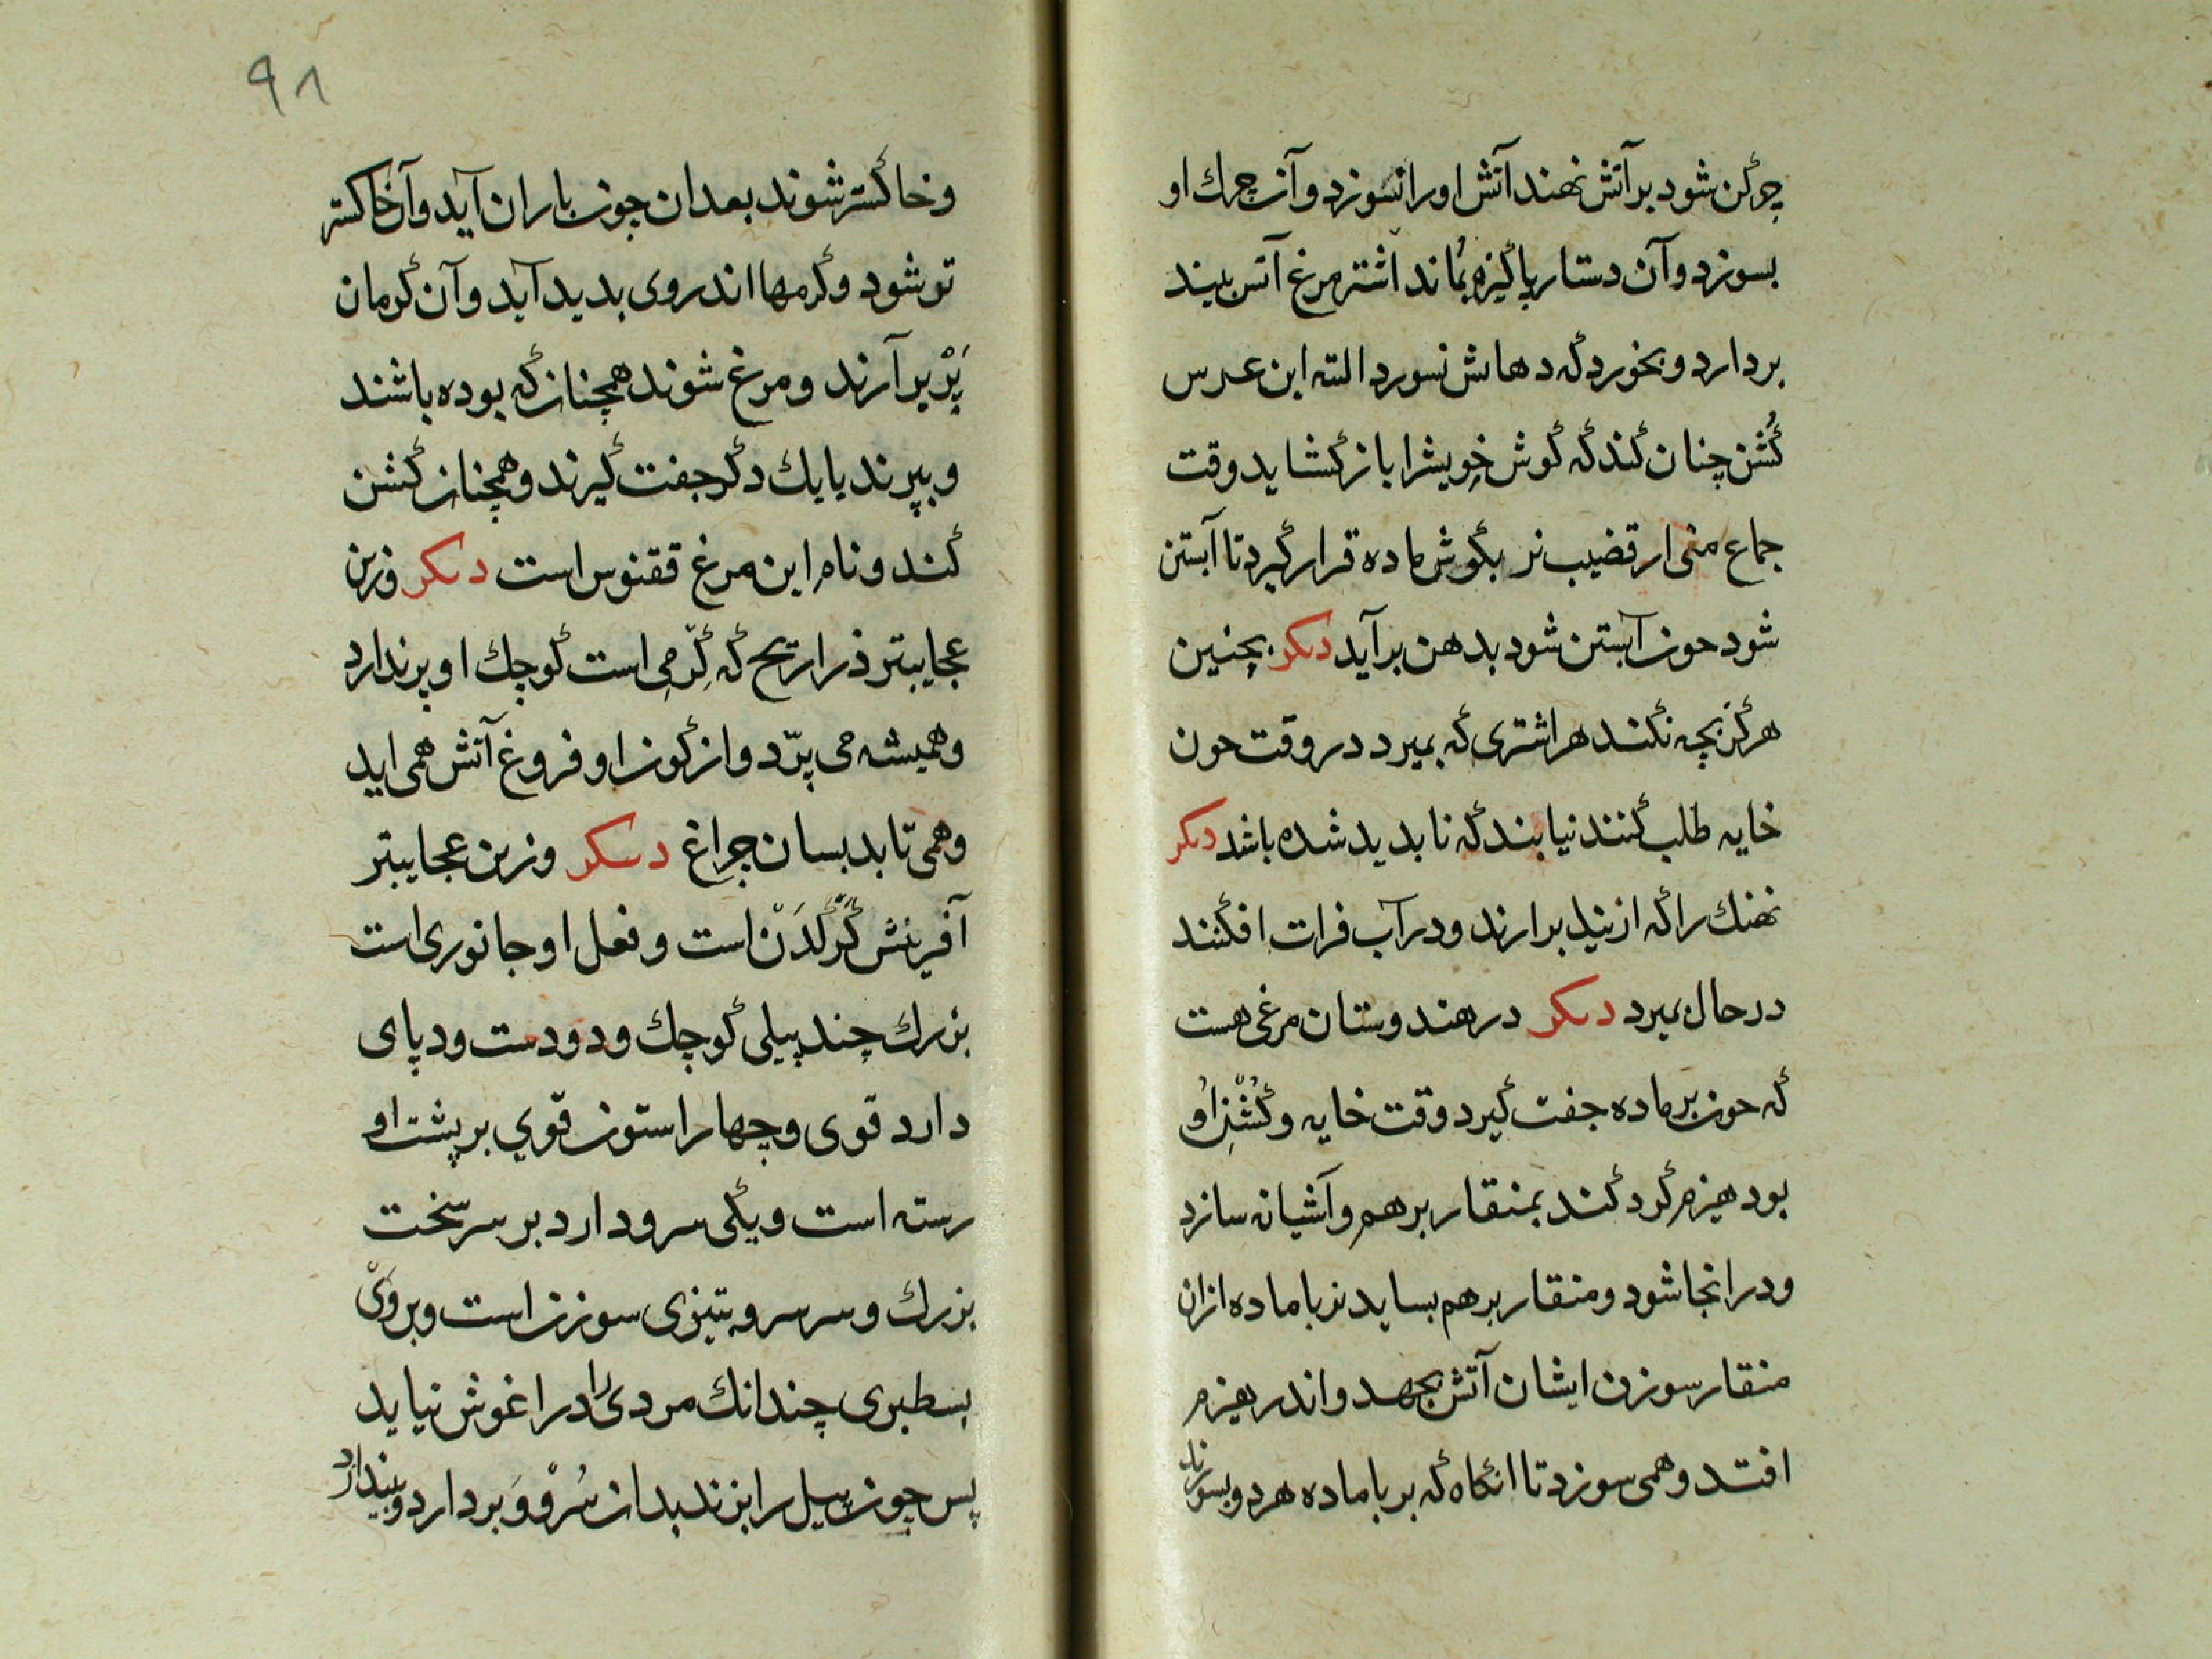 چرکن شود بر آتش نهند آتش او را نسوزد و آن چرك او
بسوزد و آن دستار پاکیزه بماند اشتر مرغ آتش بیند
بردارد و بخورد که دهانش نسوزد البته ابن عرس
کُشن چنان کند که گوش خویش را باز گشاید وقت
جماع منی از قضیب نر بگوش ماده قرار گیرد تا آبستن
شود حون آبستن شود بدهن برآید دیکر بچنین
هرگز بچه نکند هر اشتری که بمیرد در وقت حون
خایه طلب کنند نیابند که نابدید شده باشد دیکر
نهنك را که از نیل برارند و در آب فرات افکنند
در حال بمیرد دیکر در هندوستان مرغی هست
که حون بر ماده جفت گیرد وقت خایه و کُشنِ اوُ
بود هیزم گرد کند بمنقار بر هم و آشیانه سازد
و در انجا شود و منقار بر هم بساید نر با ماده از ان
منقار سوزن ایشان آتش بجهد و اندر هیزم
افتد و همی سوزد تا انگاه که بر با ماده هر دو بسوزند
۹۸
و خاکستر شوند بعد ان چون باران آید و آن خاکستر
تو شود و کرمها اندر وی بدید آید و آن کرمان
پَرّ بر آرند و مرغ شوند همچنان که بوده باشند
و بپرند با یك دگر جفت گیرند و همچنان کشن
کند و نام این مرغ ققنوس است دیکر وزین
عجایبتر ذراریح که کِرّمیِ است کوچك او پر ندارد
و همیشه می پرّد و از کون او فروغ آتش همی اید
و همی تابد بسان چراغ دیکر وزین عجایبتر
آفرینش کَرْگَدَنْ است و فعل او جانوری است
بزرك چند پیلی کوچك و دو دست و دپای
دارد قوی و چهار استون قوي بر پشت او
رسته است و یکی سرو دارد بر سر سخت
بزرك و سر سرو بتیزی سوزن است و بر وَیْ
بسطبری چندانك مردی را در اغوش نیاید
پس چون پیل را بزند بدان سُرْوْ وَ بردارد و بیندازد